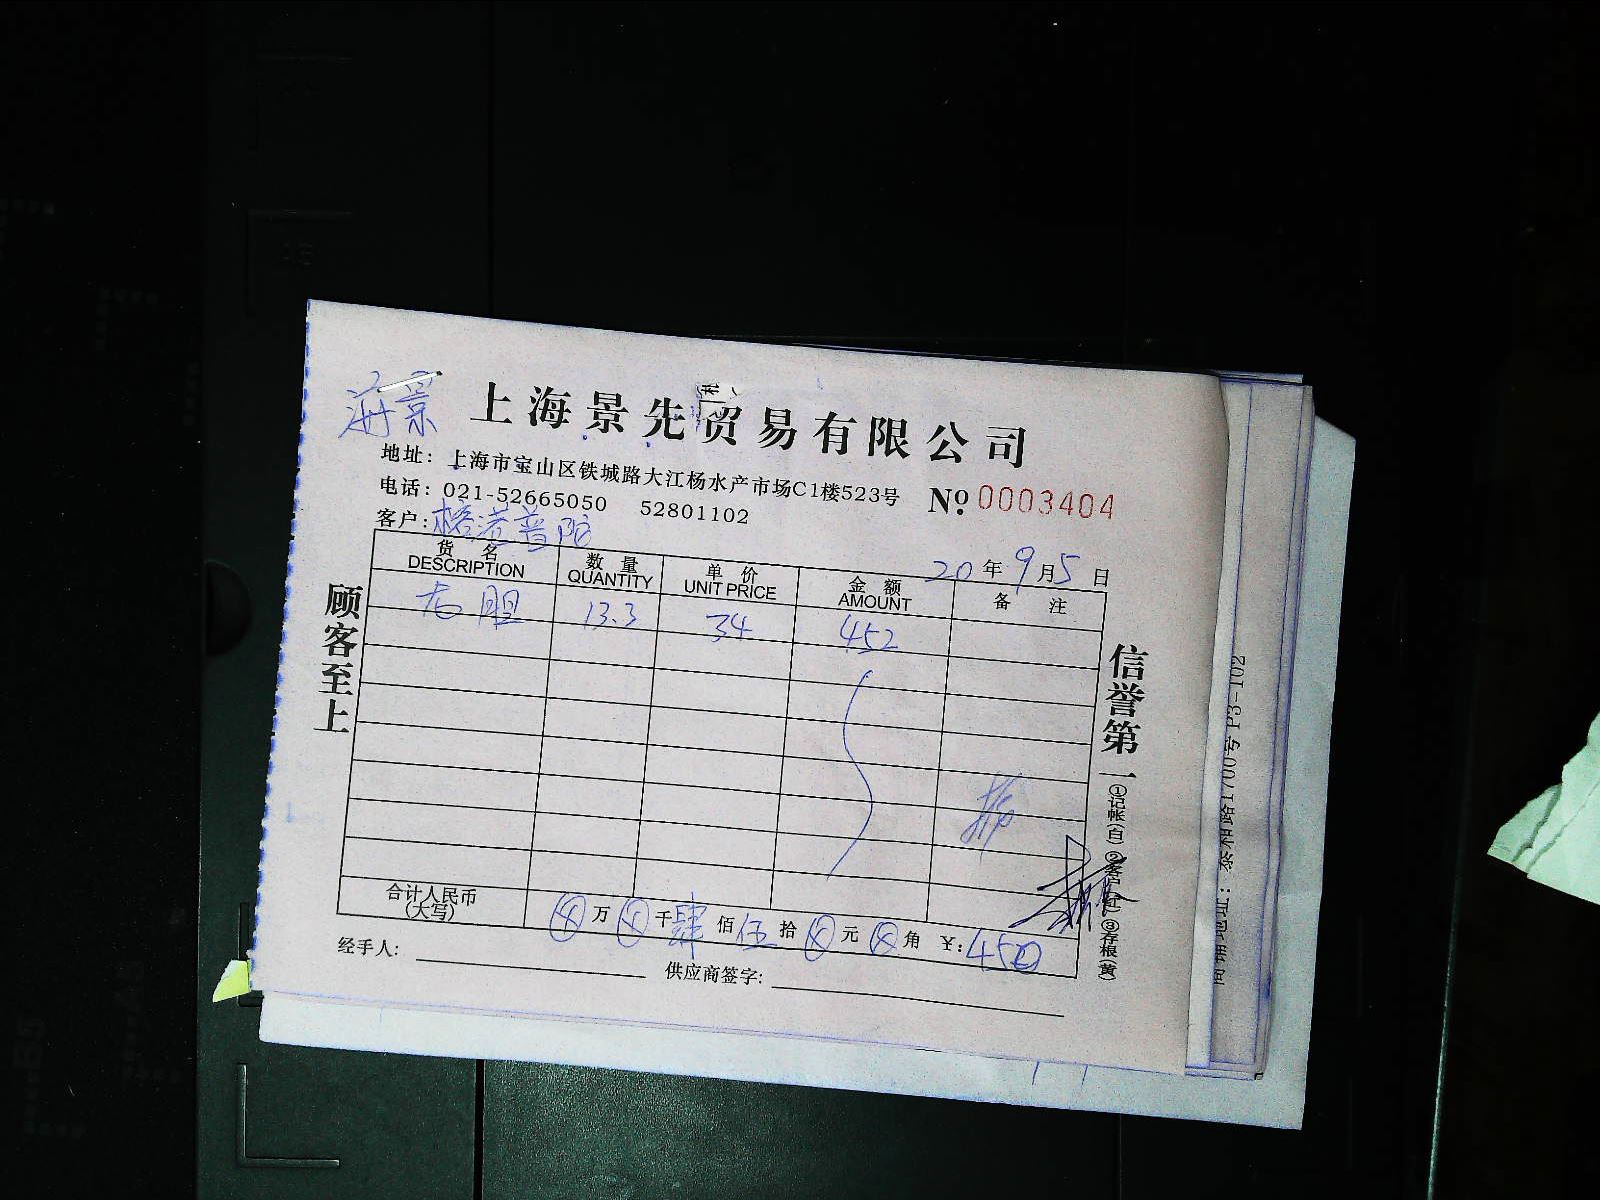 海景
上海景先贸易有限公司
地址：上海市宝山区铁城路大江杨水产市场C1楼523号
电话：021-52665050 52801102
No. 0003404
客户：榕港普陀
20年9月5日
货名 数量 单价 金额 备注
DESCRIPTION QUANTITY UNIT PRICE AMOUNT
胆 13.3 34 452
顾客至上
信誉第一
①记帐(白)②客户(红)③存根(黄)
合计人民币
(大写)
万 千肆佰伍拾 元 角 ¥：450
经手人：
供应商签字：
号 P3-102